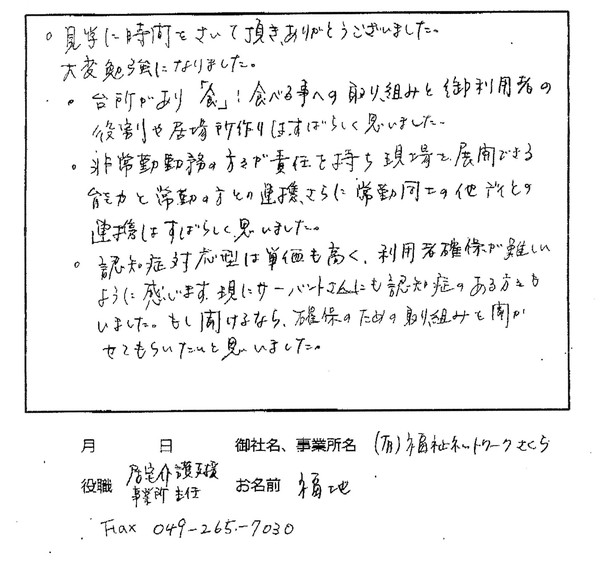 ○ 見学に時間をさいて頂き、ありがとうございました。
大変勉強になりました。
• 台所があり「食」！食べる事への取り組みと御利用者の
役割や居場所作りはすばらしく思いました。
• 非常勤勤務の方々が責任を持ち現場で展開できる
能力と常勤の方との連携、さらに常勤同士の他でとの
連携はすばらしく思いました。
○ 認知症対応型は単価も高く、利用者確保が難しい
ように感じます。現にサーバントさんにも認知症のある方々も
いました。もし聞けるなら、確保のための取り組みを聞か
せてもらいたいと思いました。
月 日 御社名、事業所名 (有)福祉ネットワークさくら
役職 居宅介護支援事業所主任 お名前 福地
Fax 049-265-7030